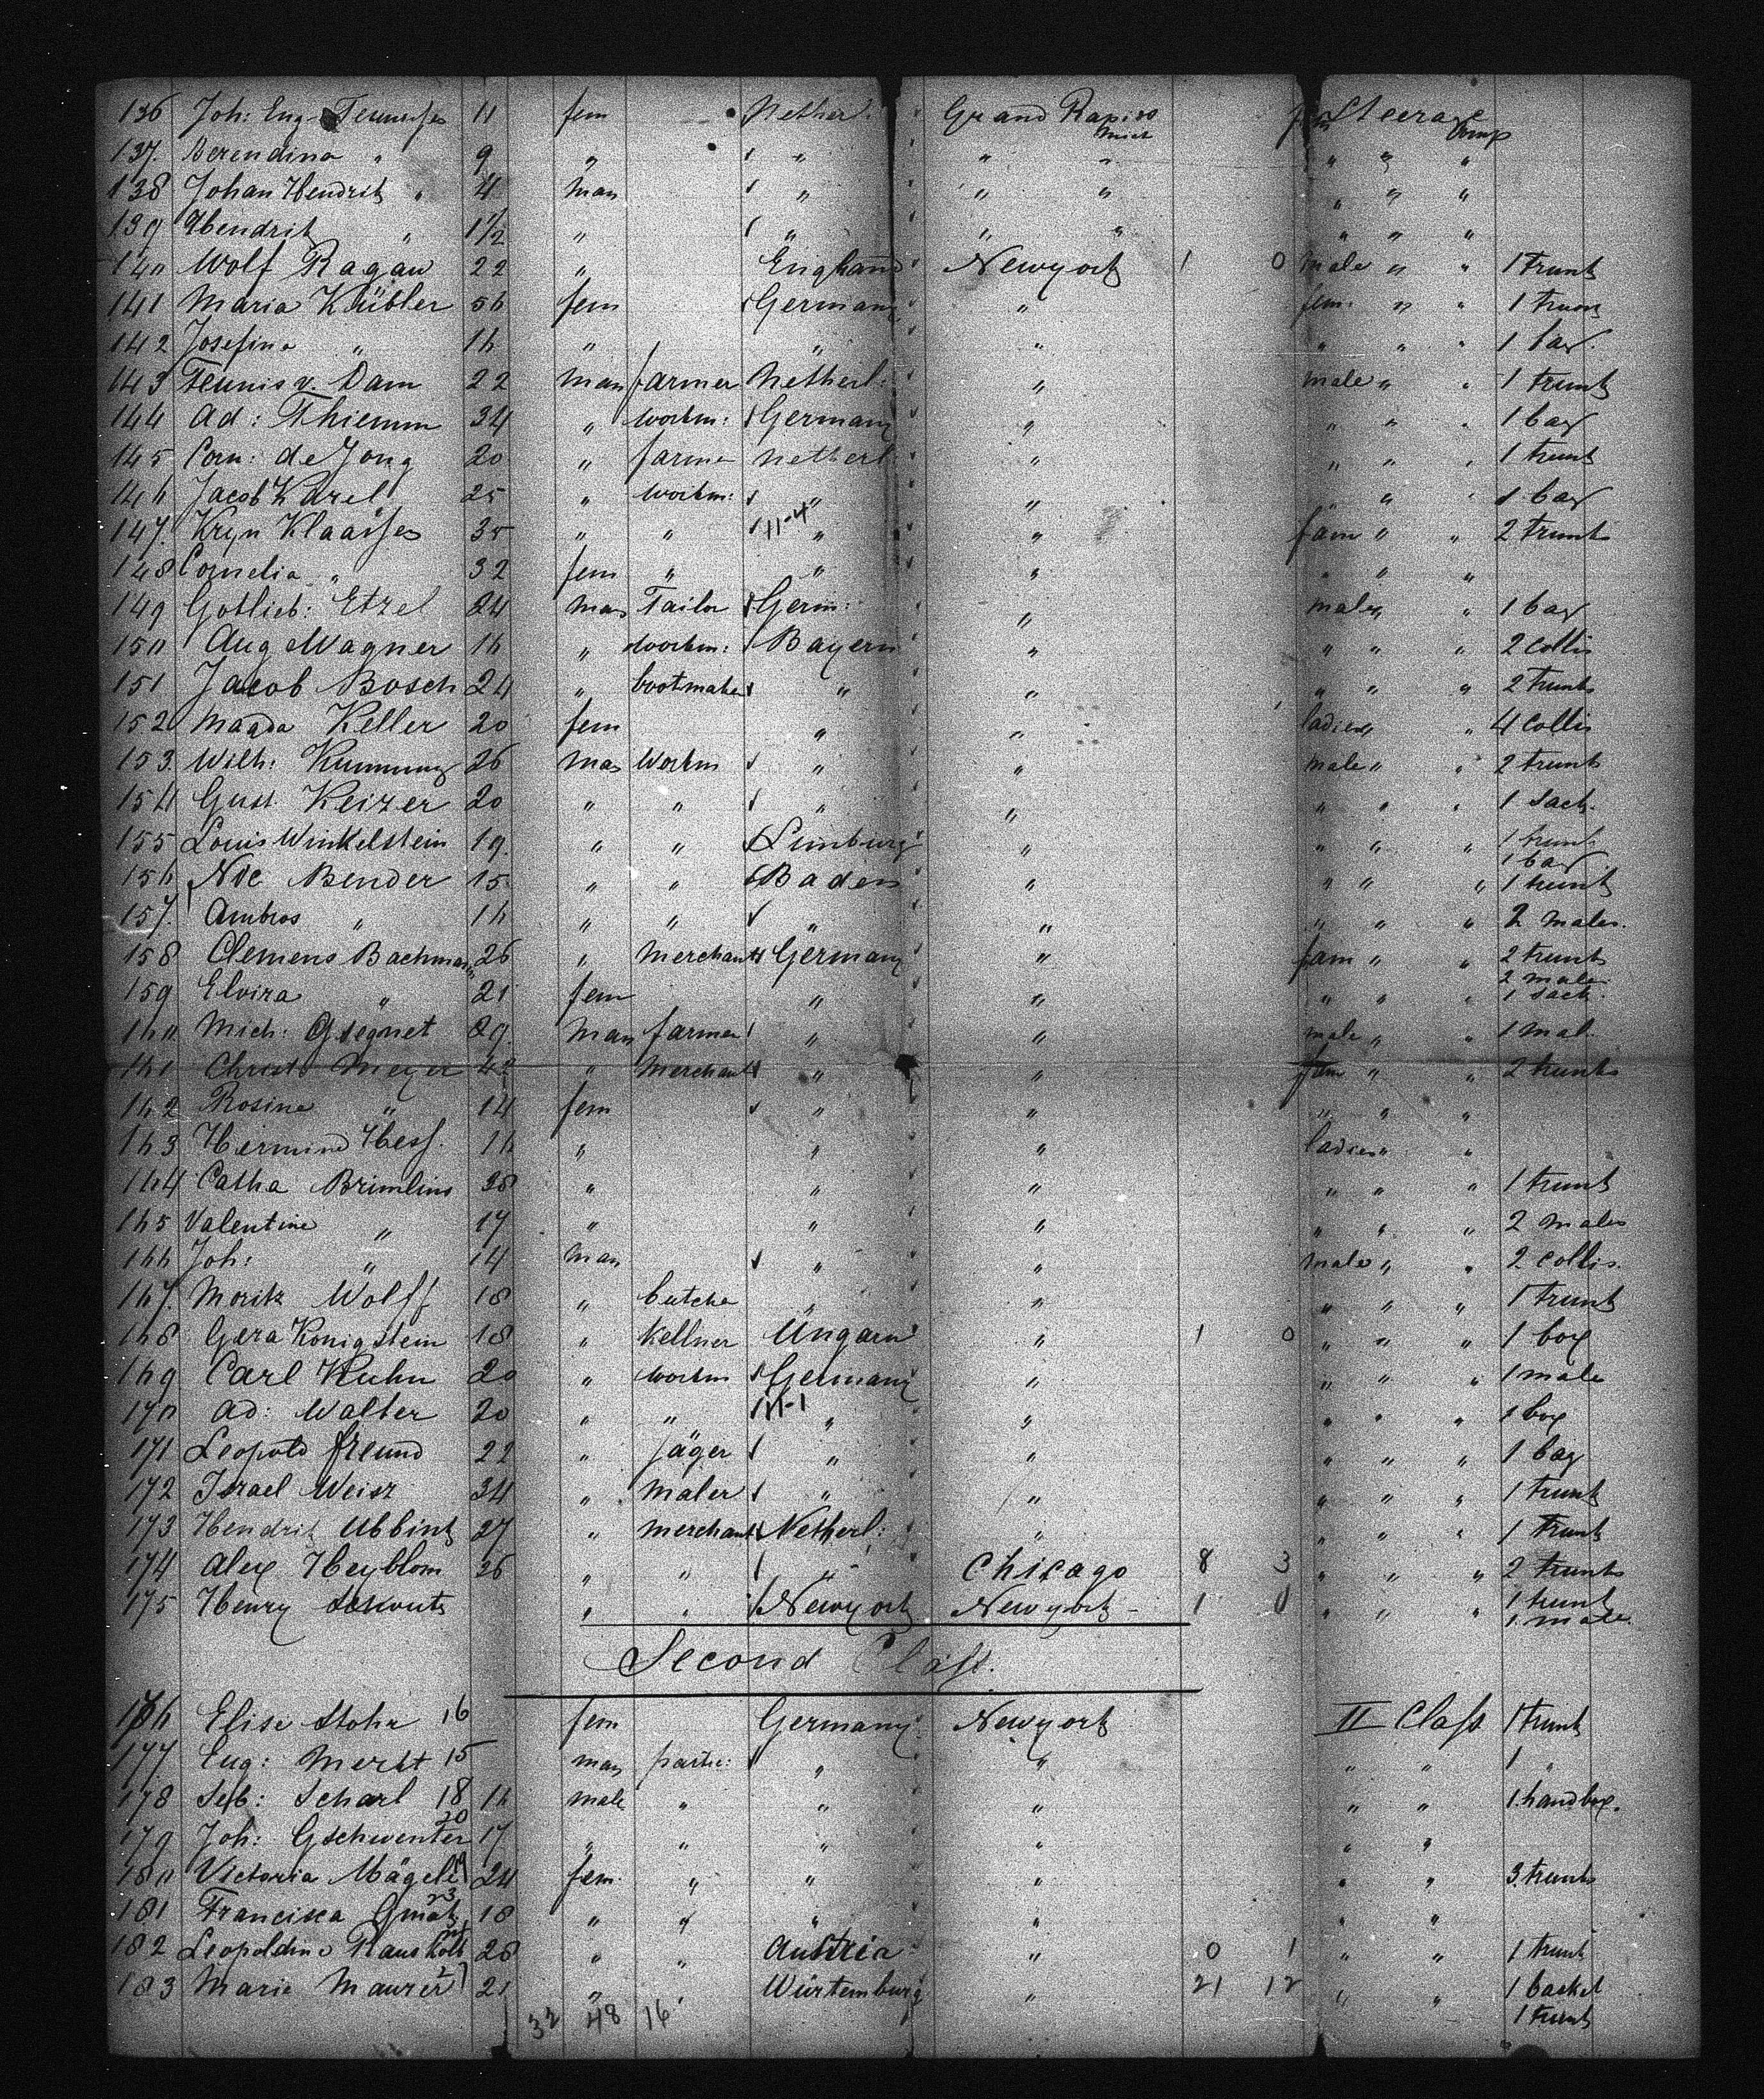 136 Joh: Eng- 11 fem Nether. Grand Rapids Mich Steerage Comp
137. Berendina " 9 " " " " " " "
138 Johan Hendrik " 4 man " " " " " "
139 Hendrik " 1 1/2 " " " " " " "
140 Wolf Ragau 22 " England Newyork 1 0 male " " 1 trunk
141 Maria Kübler 56 fem Germany " fem. " " 1 trunk
142 Josefina " 16 " " " " " " 1 bag.
143 Teunis v. Dam 22 man farmer Netherl: " male " " 1 trunk
144 Ad: Thiemm 34 " workm: Germany " " " " 1 bag
145 Corn: de Jong 20 " farmer Netherl " " " " 1 trunk
146 Jacob Karel 25 " workm: " " " " 1 bag
147. Kryn Klaassen 35 " " 11-4 " " fam " " 2 trunks
148 Cornelia " 32 fem " " " " " "
149 Gotlieb: Etzel 24 man Tailor Germ: " male " " 1 bag
150 Aug Wagner 16 " workm: Bayern " " " " 2 collis
151 Jacob Bosch 24 " bootmaker " " " " " 2 trunks
152 Magda Keller 20 fem " " ladies " " 4 collis
153. Wilh: 26 man workm " " male " " 2 trunks
154 Gust. Keizer 20 " " " " " " " 1 sack.
155 Louis Winkelstein 19. " " Limburg " " " " 1 trunk
1 bag
156 Nic Bender 15 " " Baden " " " " 1 trunk
157. Ambros " 16 " " " " " " " 2 males.
158 Clemens Bachmann 26 " Merchant Germany " fam " " 2 trunks
2 males
159 Elvira " 21 fem " " " " " 1 sack.
160 Mich: Gsegnet 29. man farmer " " male " " 1 mal.
161 Christ Meyer 42 " Merchant " " fam " " 2 trunks
162 Rosine " 14 fem " " " " "
163 Hermine Hess. 16 " " " ladies " "
164 Catha Brimlins 38 " " " " " " 1 trunk
165 Valentine " 17 " " " " " " 2 males
166 Joh: " 14 man " " male " " 2 collis.
167. Moritz Wolff 18 " butcher " " " " " 1 trunk
168 Gera Konigstein 18 " Kellner Ungarn " 1 0 " " " 1 box
169 Carl Kuhn 20 " workm Germany " " " " 1 male
170 Ad: Walter 20 " " 11-1 " " " " " 1 box
171 Leopold Freund 22 " Jäger " " " " " 1 bag
172 Israel Weisz 34 " Maler " " " " " 1 trunk
173 Hendrik Ubbink 27 " merchant Netherl: " " " " 1 trunk
174 Alex Heyblom 26 " " " Chicago 8 3 " " " 2 trunks
175 Henry " " Newyork Newyork - 1 0 " " " 1 trunk
1 male
Second Class.
176 Elise Stohr 16 fem Germany Newyork II Class 1 trunk
177 Eug: Merkt 15 man partic: " " " " 1 "
178 Seb: Scharl 18 16 male " " " " " 1 handbox.
179 Joh: Gschwenter 20 17 " " " " " "
180 Victoria Mägele 19 24 fem. " " " " " 3 trunks
181 Francisca 23 18 " " " " " "
182 Leopoldine 28 " " Austria " 0 1 " " 1 trunk
183 Marie Maurer 21 21 " " Würtemburg " 21 12 " " 1 basket
32 48 16 1 trunk